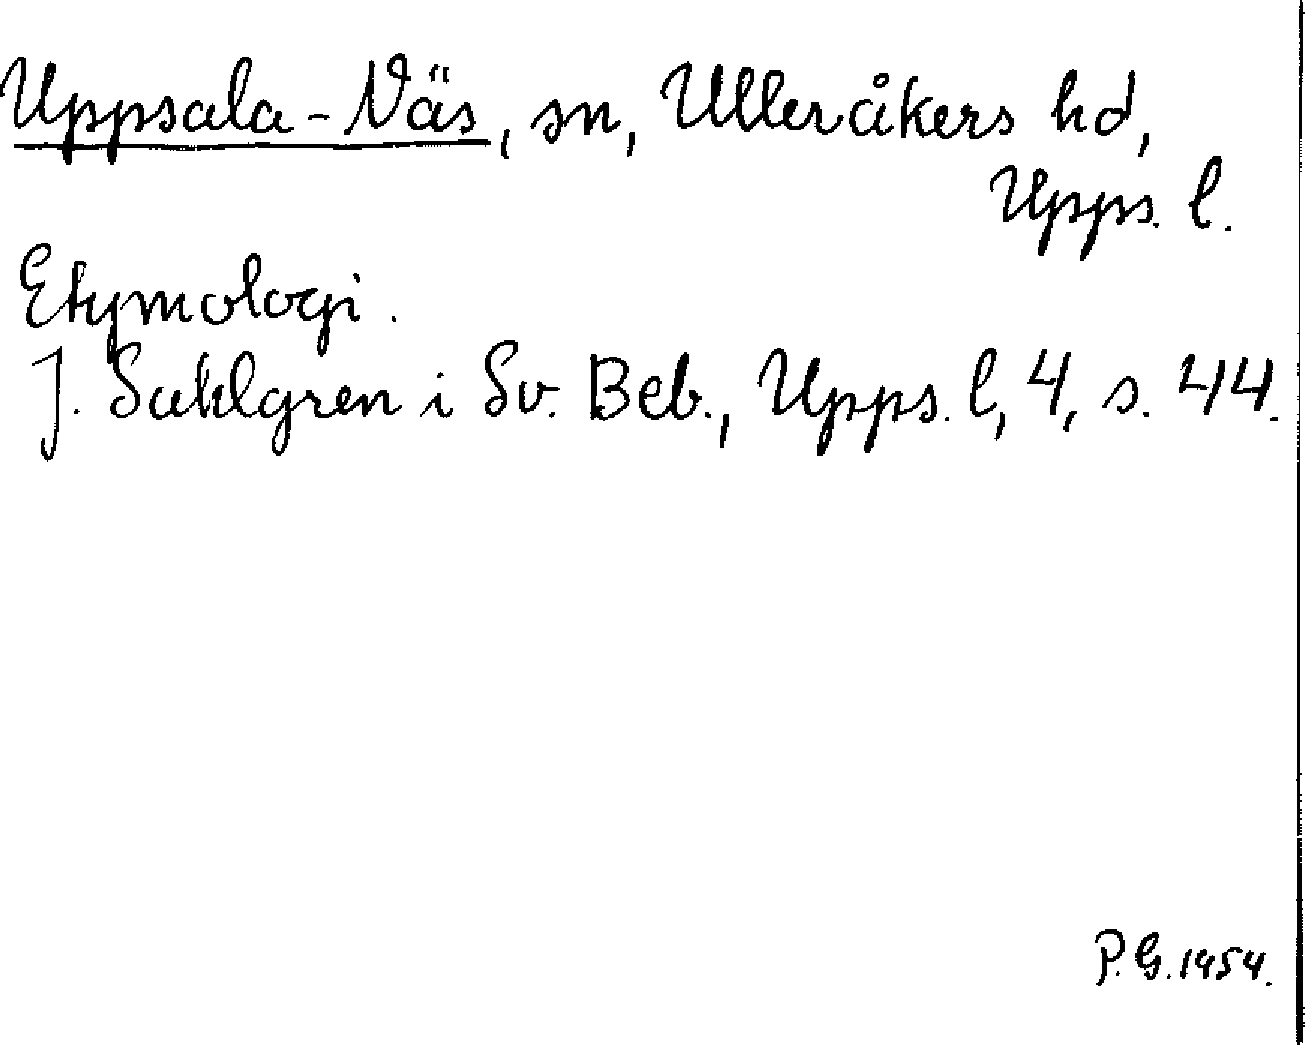 Uppsala-Näs, sn, Ulleråkers hd,
Upps. l.
Etymologi.
J. Sahlgren i Sv. Beb., Upps. l, 4, s. 44.
P. G. 1954.